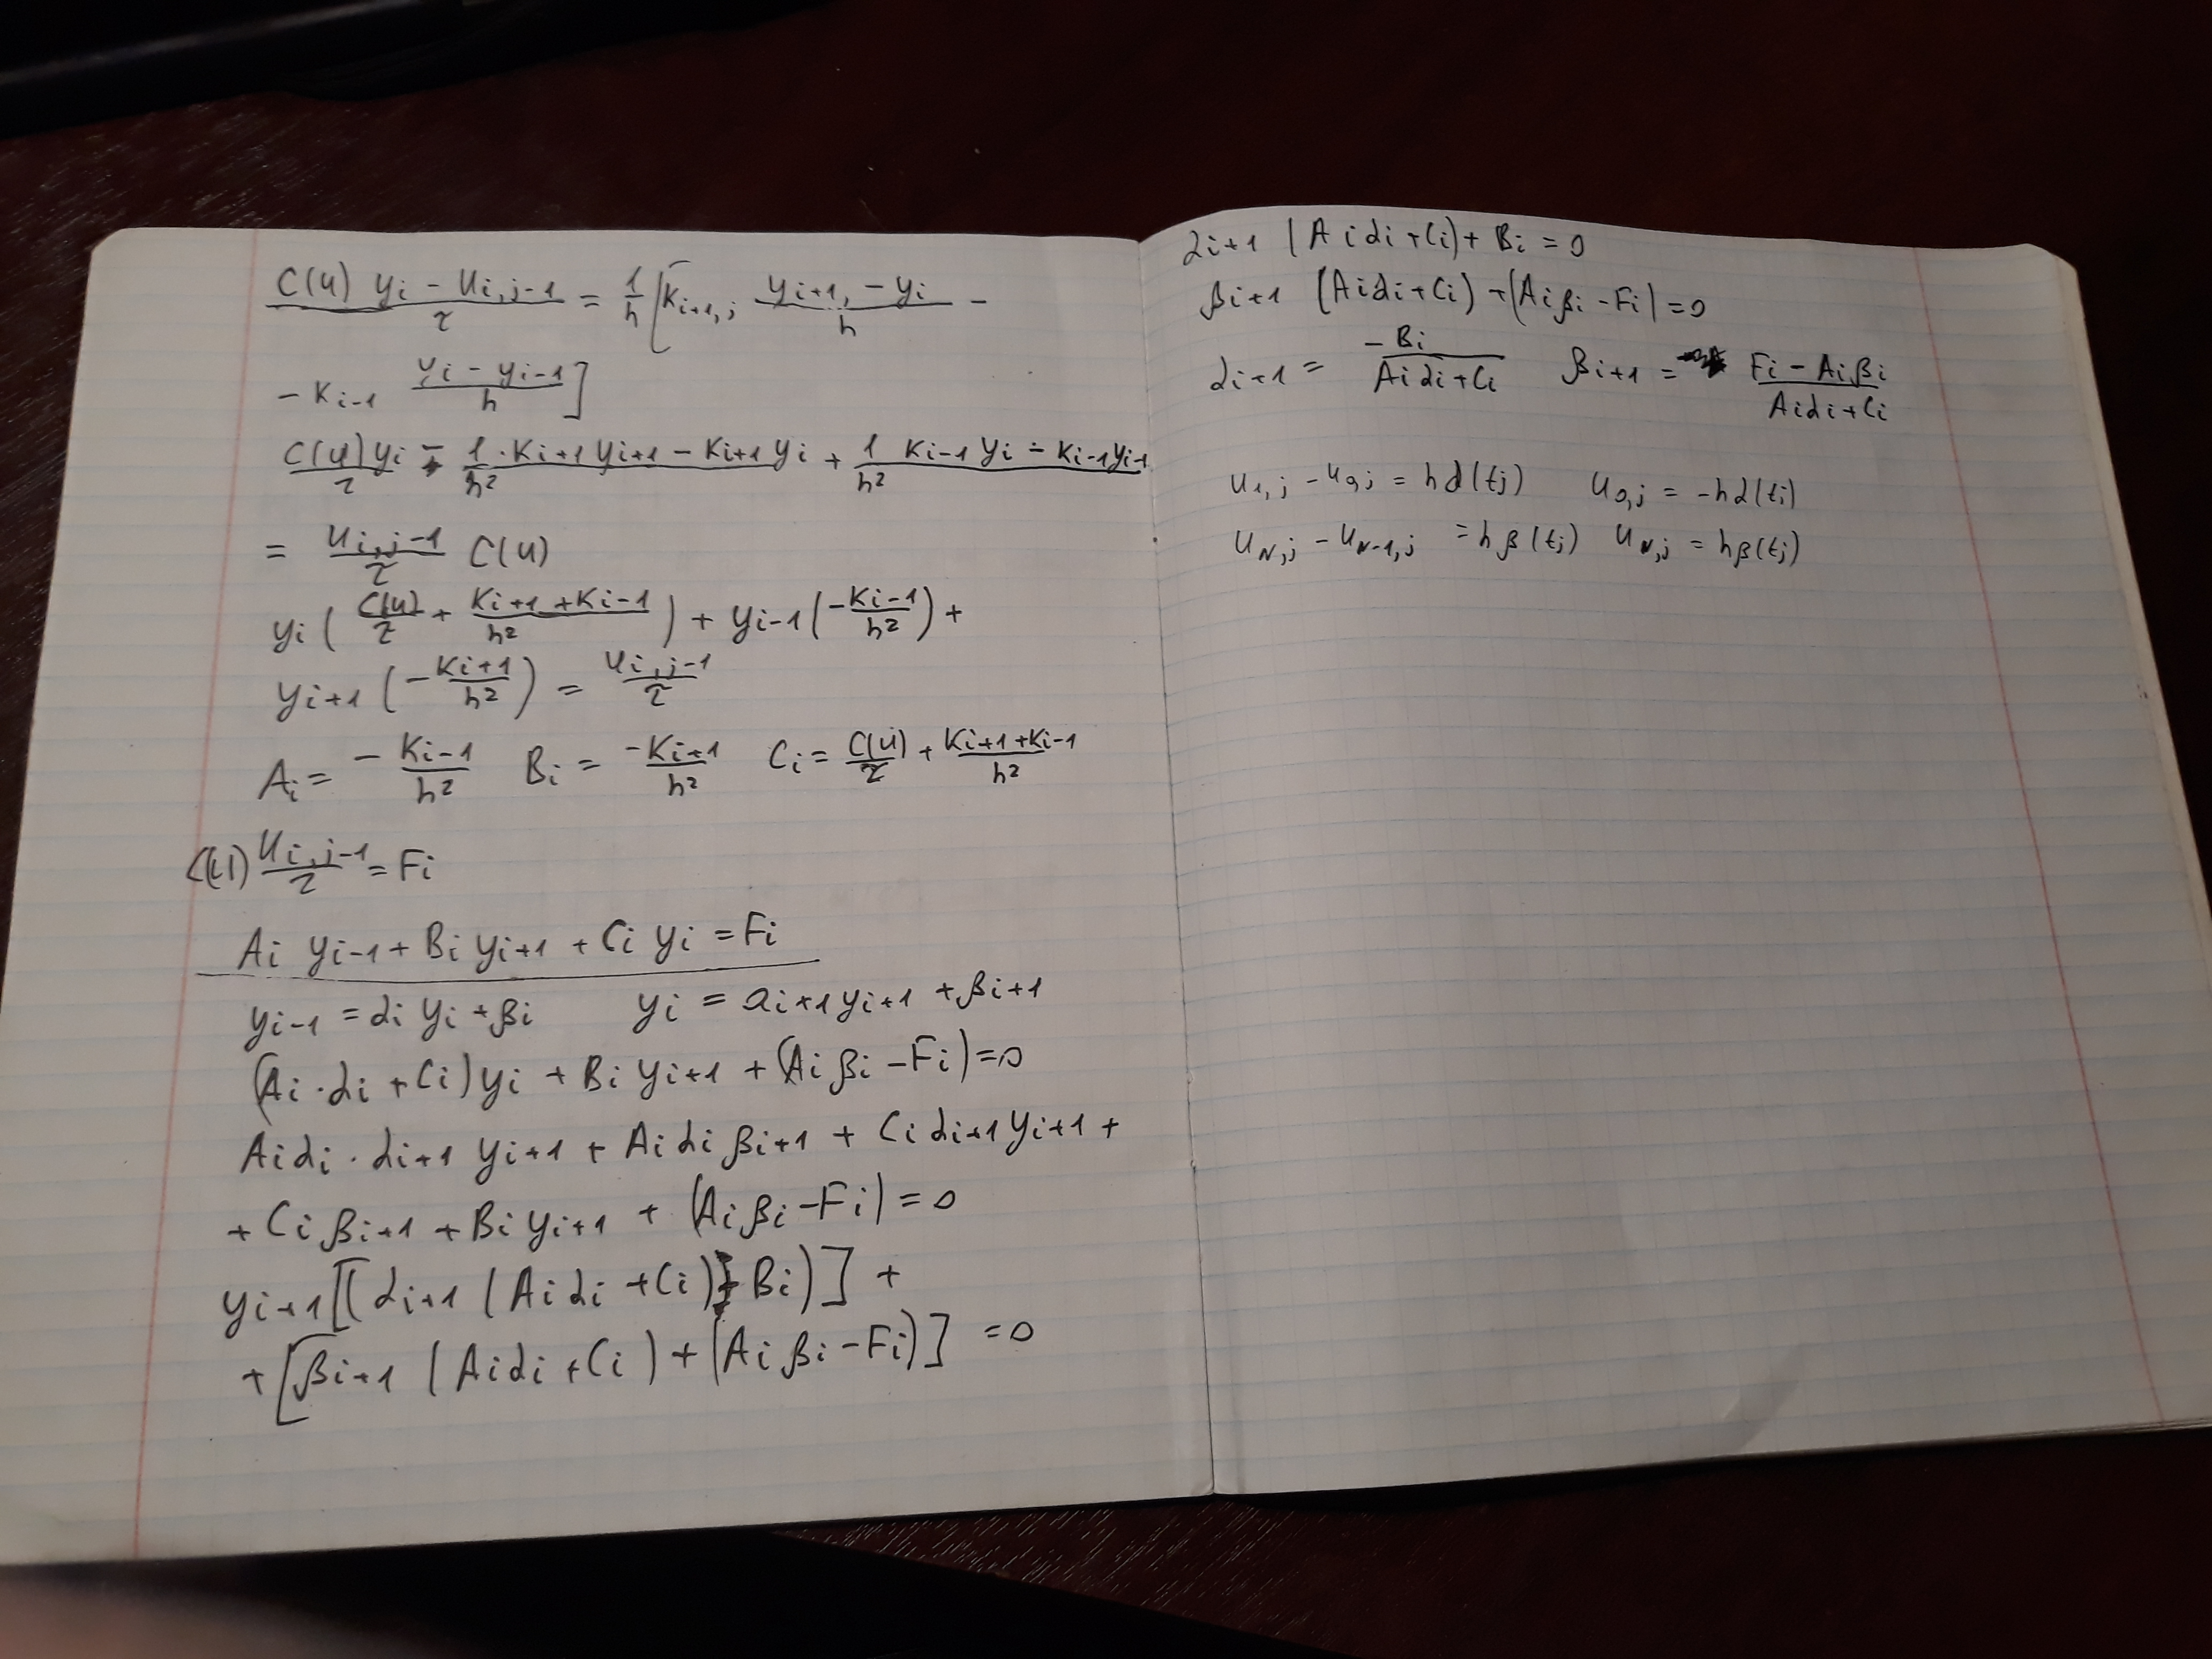 C(u) yi - ui,j-1 / τ = 1/h [Ki+1,j yi+1, - yi / h -
- Ki-1 yi - yi-1 / h ]
C(u)yi / τ - 1/h² · Ki+1 yi+1 - Ki+1 yi + 1/h² Ki-1 yi - Ki-1 yi-1
= ui,j-1 / τ C(u)
yi ( C(u)/τ + Ki+1 + Ki-1 / h² ) + yi-1 (-Ki-1 / h²) +
yi+1 (-Ki+1 / h²) = ui,j-1 / τ
Ai = - Ki-1 / h² Bi = -Ki+1 / h² Ci = C(u)/τ + Ki+1 + Ki-1 / h²
C(u) ui,j-1 / τ = Fi
Ai yi-1 + Bi yi+1 + Ci yi = Fi
yi-1 = αi yi + βi yi = αi+1 yi+1 + βi+1
(Ai · αi + Ci) yi + Bi yi+1 + (Ai βi - Fi) = 0
Ai αi · αi+1 yi+1 + Ai αi βi+1 + Ci αi+1 yi+1 +
+ Ci βi+1 + Bi yi+1 + (Ai βi - Fi) = 0
yi+1 [( αi+1 (Ai αi + Ci) + Bi)] +
+ [βi+1 (Ai αi + Ci) + (Ai βi - Fi)] = 0
αi+1 (Ai αi + Ci) + Bi = 0
βi+1 (Ai αi + Ci) + (Ai βi - Fi) = 0
αi+1 = - Bi / Ai αi + Ci βi+1 = Fi - Ai βi / Ai αi + Ci
u1,j - u0,j = h α(tj) u0,j = -h α(tj)
uN,j - uN-1,j = h β(tj) uN,j = h β(tj)